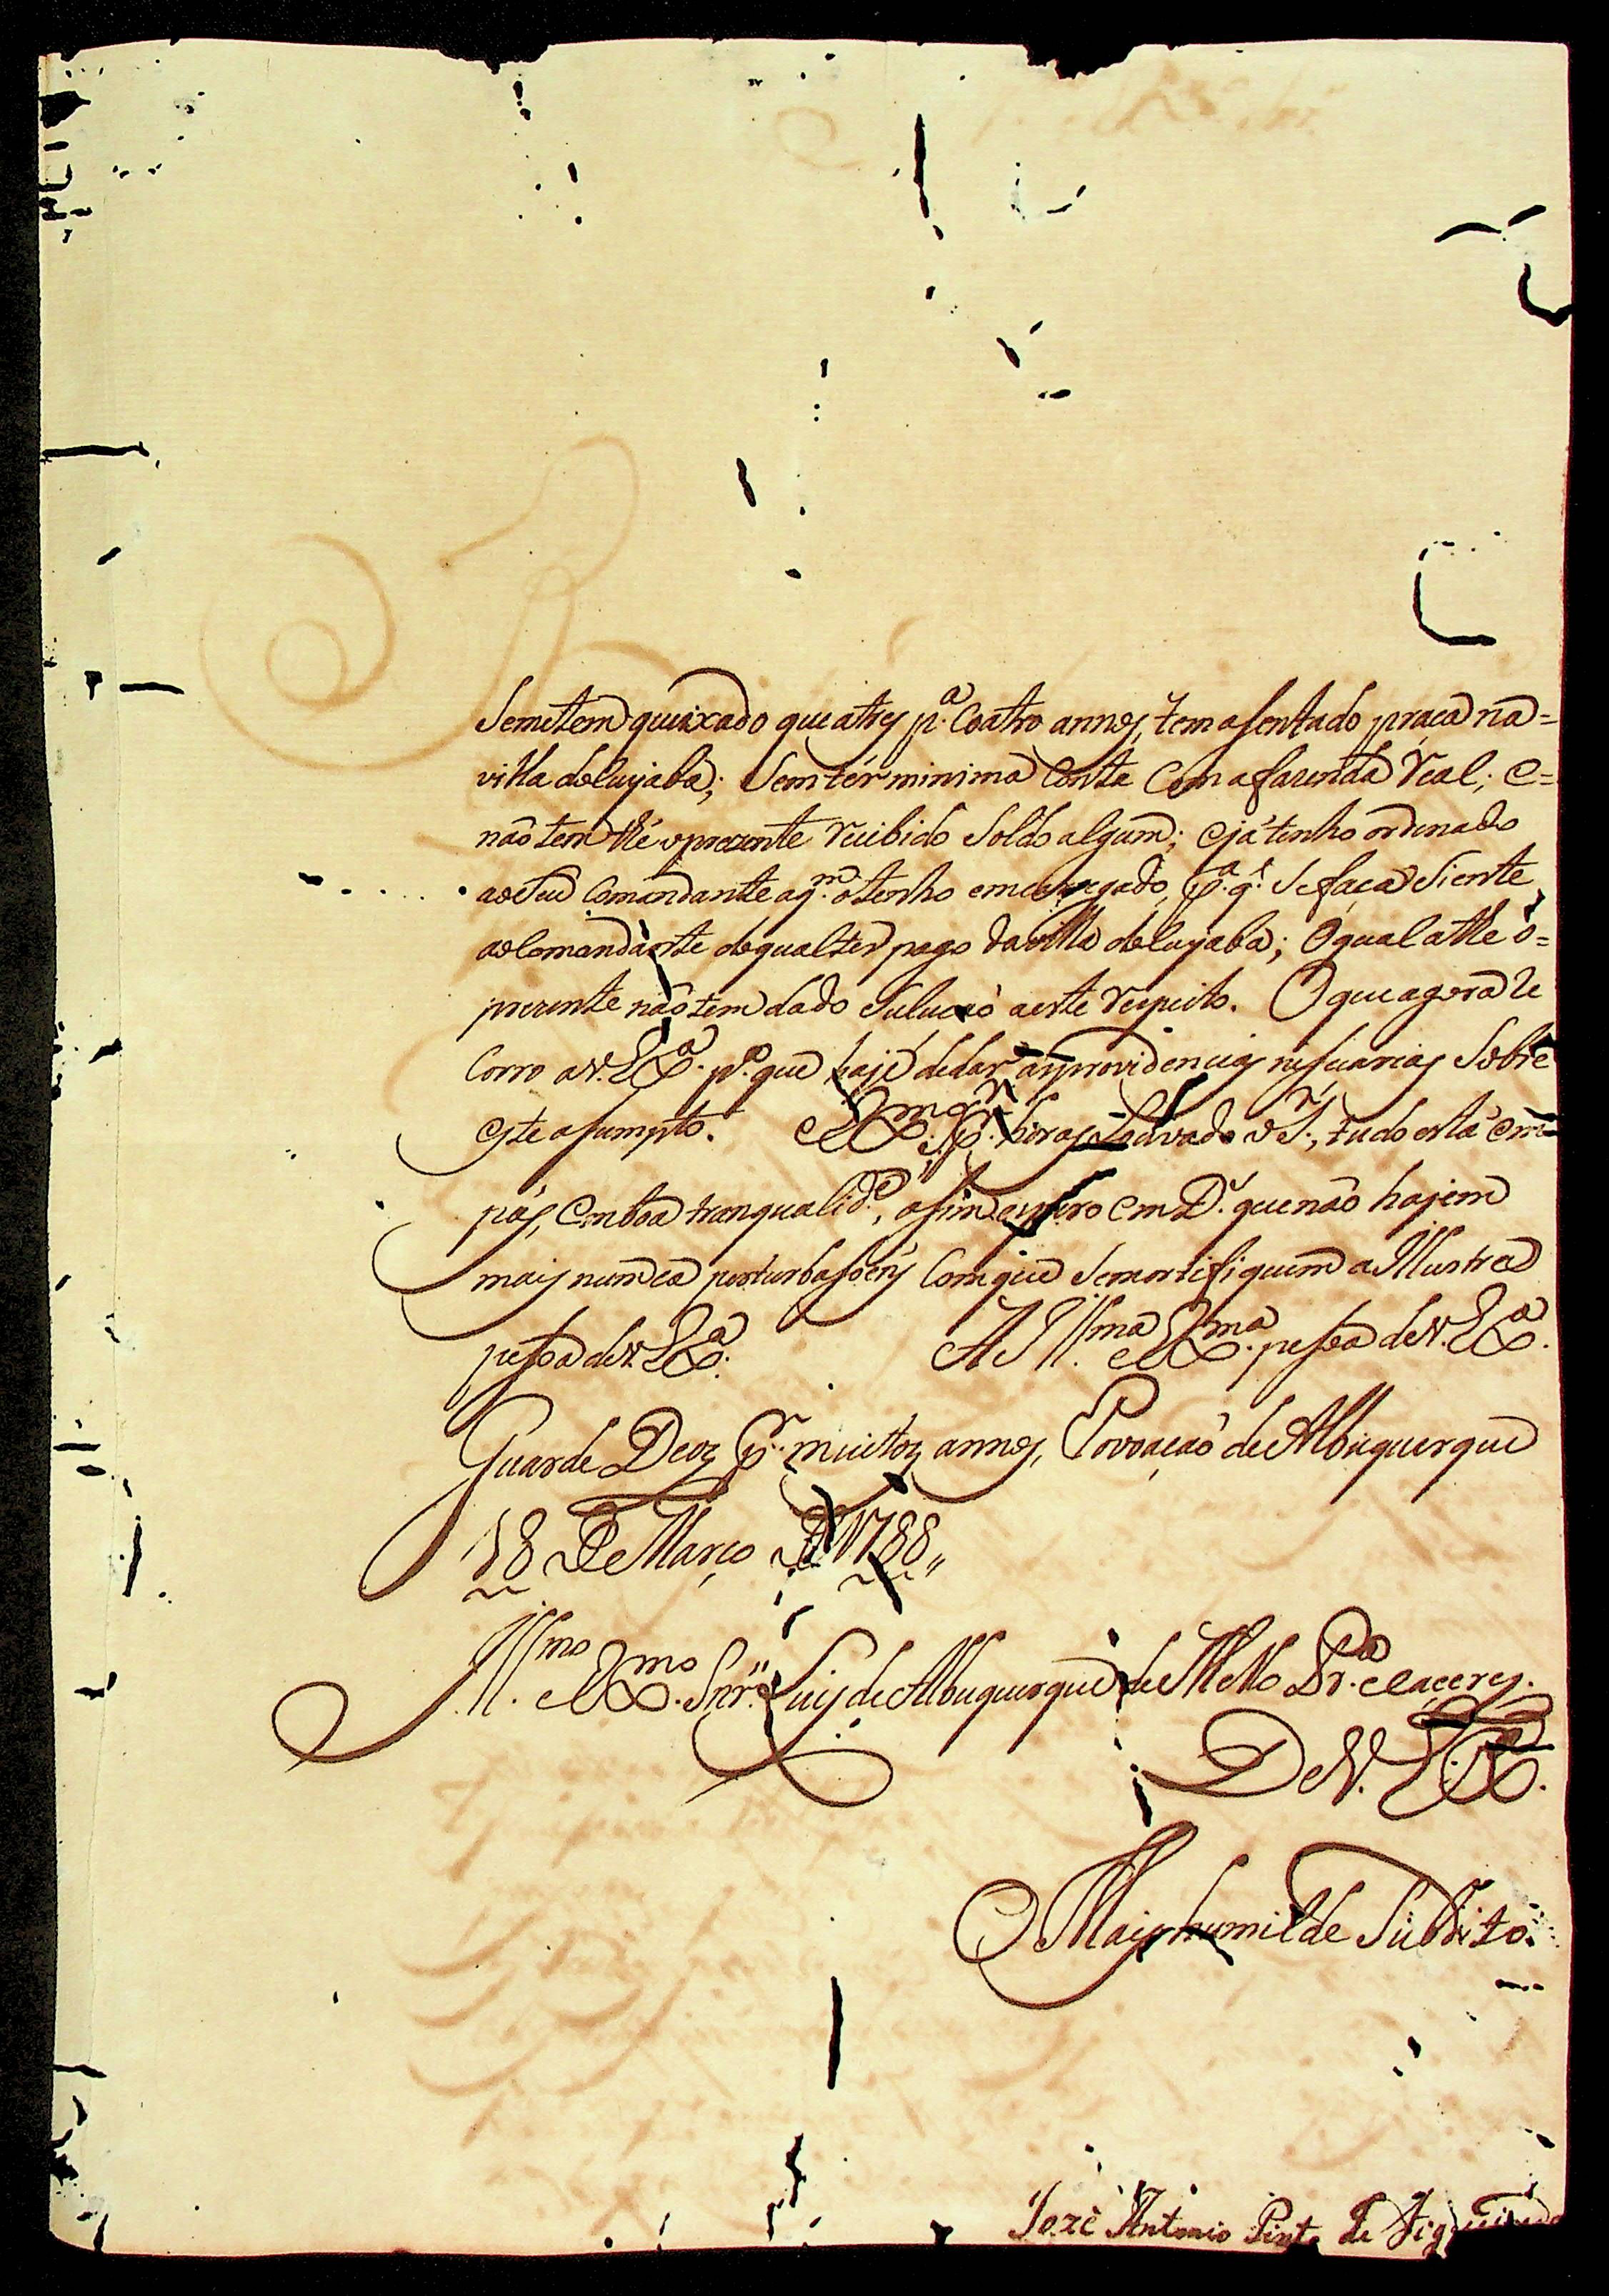 Semetem queixado que atrez p.ª Coatro annos, tem asentado praça na=
villa deCuyaba; Sem tér minima Conta Com a fazenda Real; e=
não tem thé oprezente recibido Soldo algum; eja tenho ordenado
aoSeu Comandante aq.m o tenho emcarregado, p.ª q.e Sefaça Siente
aoComandante dequalter pago davilla deCuyaba; Oqual athe o=
prezente não tem dado Suluçaó aeste respeito. O que agora Re
Corro aV. Ex.ª p.ª que haje dedar asprovidencias nesesarias Sobre
este asumpto. Ex.mo S.r p.r horas Louvado D.s, tudo está em=
pás, em boa tranqualid.e, asim espero em D.s que não hajem
mais nunca perturbasoens Com que Semortifiquem a Illustre
pesoa deV. Ex.ª A Ill.ma Ex.ma pesoa deV. Ex.ª
Guarde Deoz p.r muitoz annos, Povoaçaó de Albuquerque
18 De Março D 1788,,
Ill.mo Ex.mo Snr. Luis de Albuquerque de Mello Pr.ª eCaçeres.
DeV. Ex.
O Mais humilde Subdito.
Jozé Antonio Pinto de Figueiredo